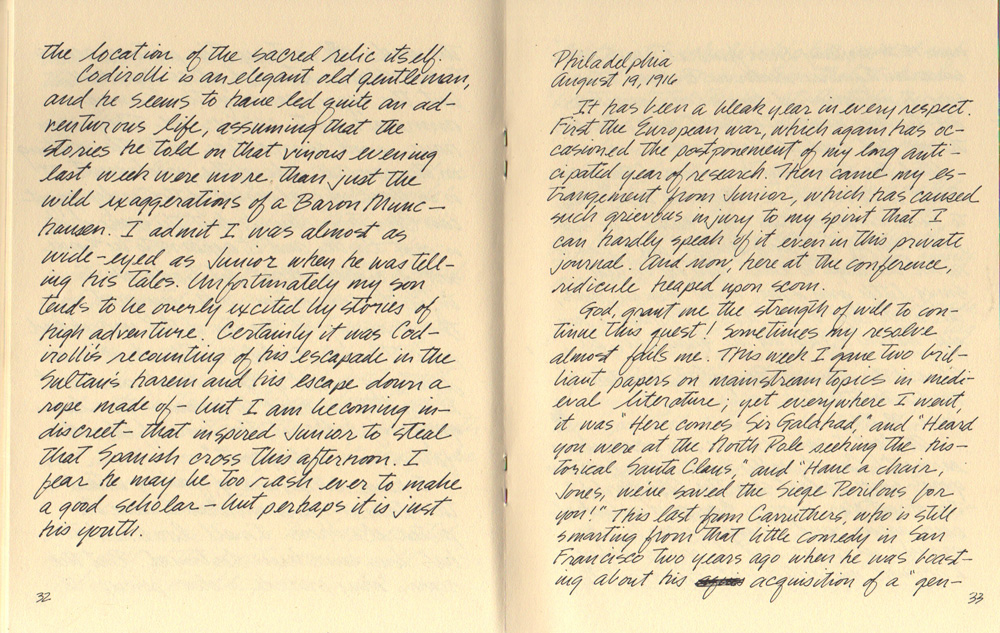 the location of the sacred relic itself.
Codirolli is an elegant old gentleman,
and he seems to have led quite an ad-
venturous life, assuming that the
stories he told on that vinous evening
last week were more than just the
wild exaggerations of a Baron Munc-
hausen. I admit I was almost as
wide-eyed as Junior when he was tell-
ing his tales. Unfortunately my son
tends to be overly excited by stories of
high adventure! Certainly it was Cod-
irolli's recounting of his escapade in the
Sultan's harem and his escape down a
rope made of - but I am becoming in-
discreet - that inspired Junior to steal
that Spanish cross this afternoon. I
fear he may be too rash ever to make
a good scholar - but perhaps it is just
his youth.
32
Philadelphia
August 19, 1916
It has been a bleak year in every respect.
First the European war, which again has oc-
casioned the postponement of my long anti-
cipated year of research. Then came my es-
trangement from Junior, which has caused
such grievous injury to my spirit that I
can hardly speak of it even in this private
journal. And now, here at the conference,
ridicule heaped upon scorn.
God, grant me the strength of will to con-
tinue this quest! Sometimes my resolve
almost fails me. This week I gave two bril-
liant papers on mainstream topics in medi-
eval literature; yet everywhere I went,
it was "Here comes Sir Galahad," and "Heard
you were at the North Pole seeking the his-
torical Santa Claus," and "Have a chair,
Jones, we've saved the Siege Perilous for
you!" This last from Carruthers, who is still
smarting from that little comedy in San
Francisco two years ago when he was boast-
ing about his acquisition of a "gen-
33